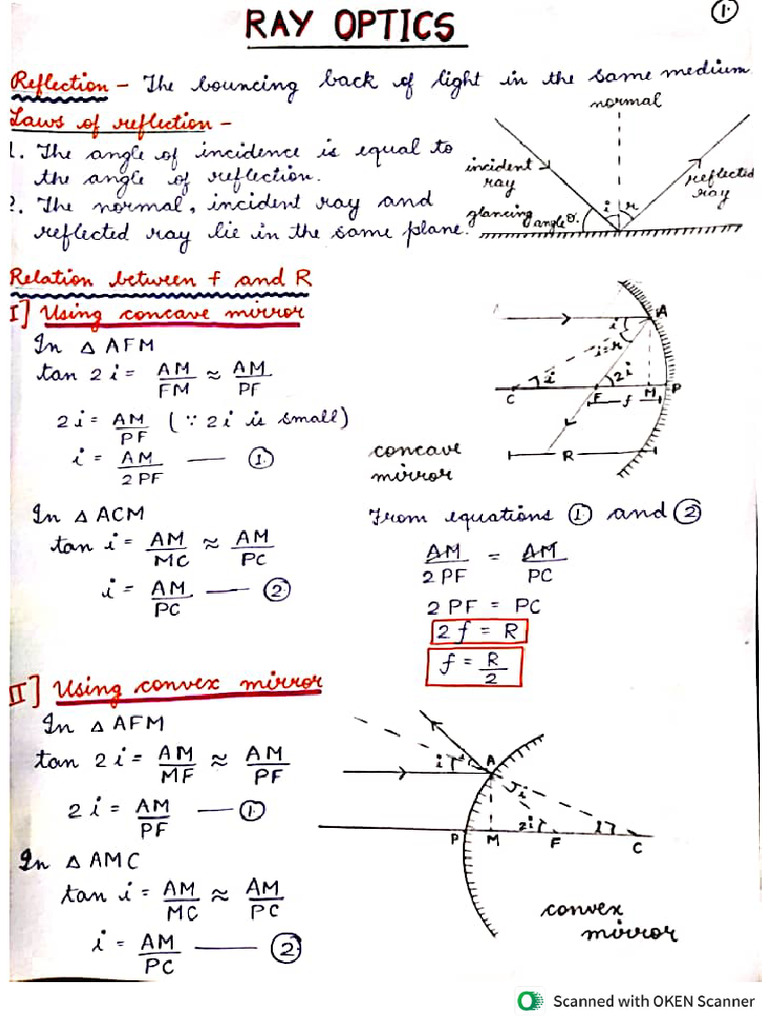 RAY OPTICS
1.
Reflection – The bouncing back of light in the same medium.
Laws of reflection –
1. The angle of incidence is equal to
the angle of reflection.
2. The normal, incident ray and
reflected ray lie in the same plane.
normal
incident
ray
reflected
ray
glancing
angle θ.
i
r
Relation between f and R
I] Using concave mirror
In △ AFM
tan 2i = AM/FM ≈ AM/PF
2i = AM/PF (∵ 2i is small)
i = AM/2PF — ①
In △ ACM
tan i = AM/MC ≈ AM/PC
i = AM/PC — ②
A
i
i=r
i
2i
C
F
M
P
f
R
concave
mirror
From equations ① and ②
AM/2PF = AM/PC
2 PF = PC
2 f = R
f = R/2
II] Using convex mirror
In △ AFM
tan 2i = AM/MF ≈ AM/PF
2i = AM/PF — ①
In △ AMC
tan i = AM/MC ≈ AM/PC
i = AM/PC — ②
A
i
i
2i
i
P
M
F
C
convex
mirror
Scanned with OKEN Scanner